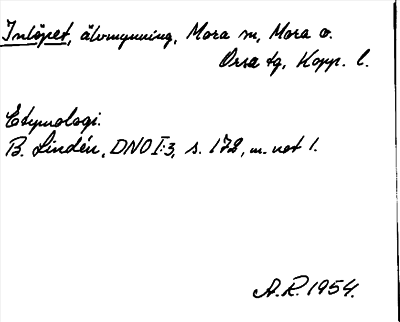 Inlöpet, älvmynning, Mora sn, Mora o.
Orsa tg, Kopp. l.
Etymologi.
B. Lindén, DNO I:3, s. 172, m. not 1.
A.R. 1954.